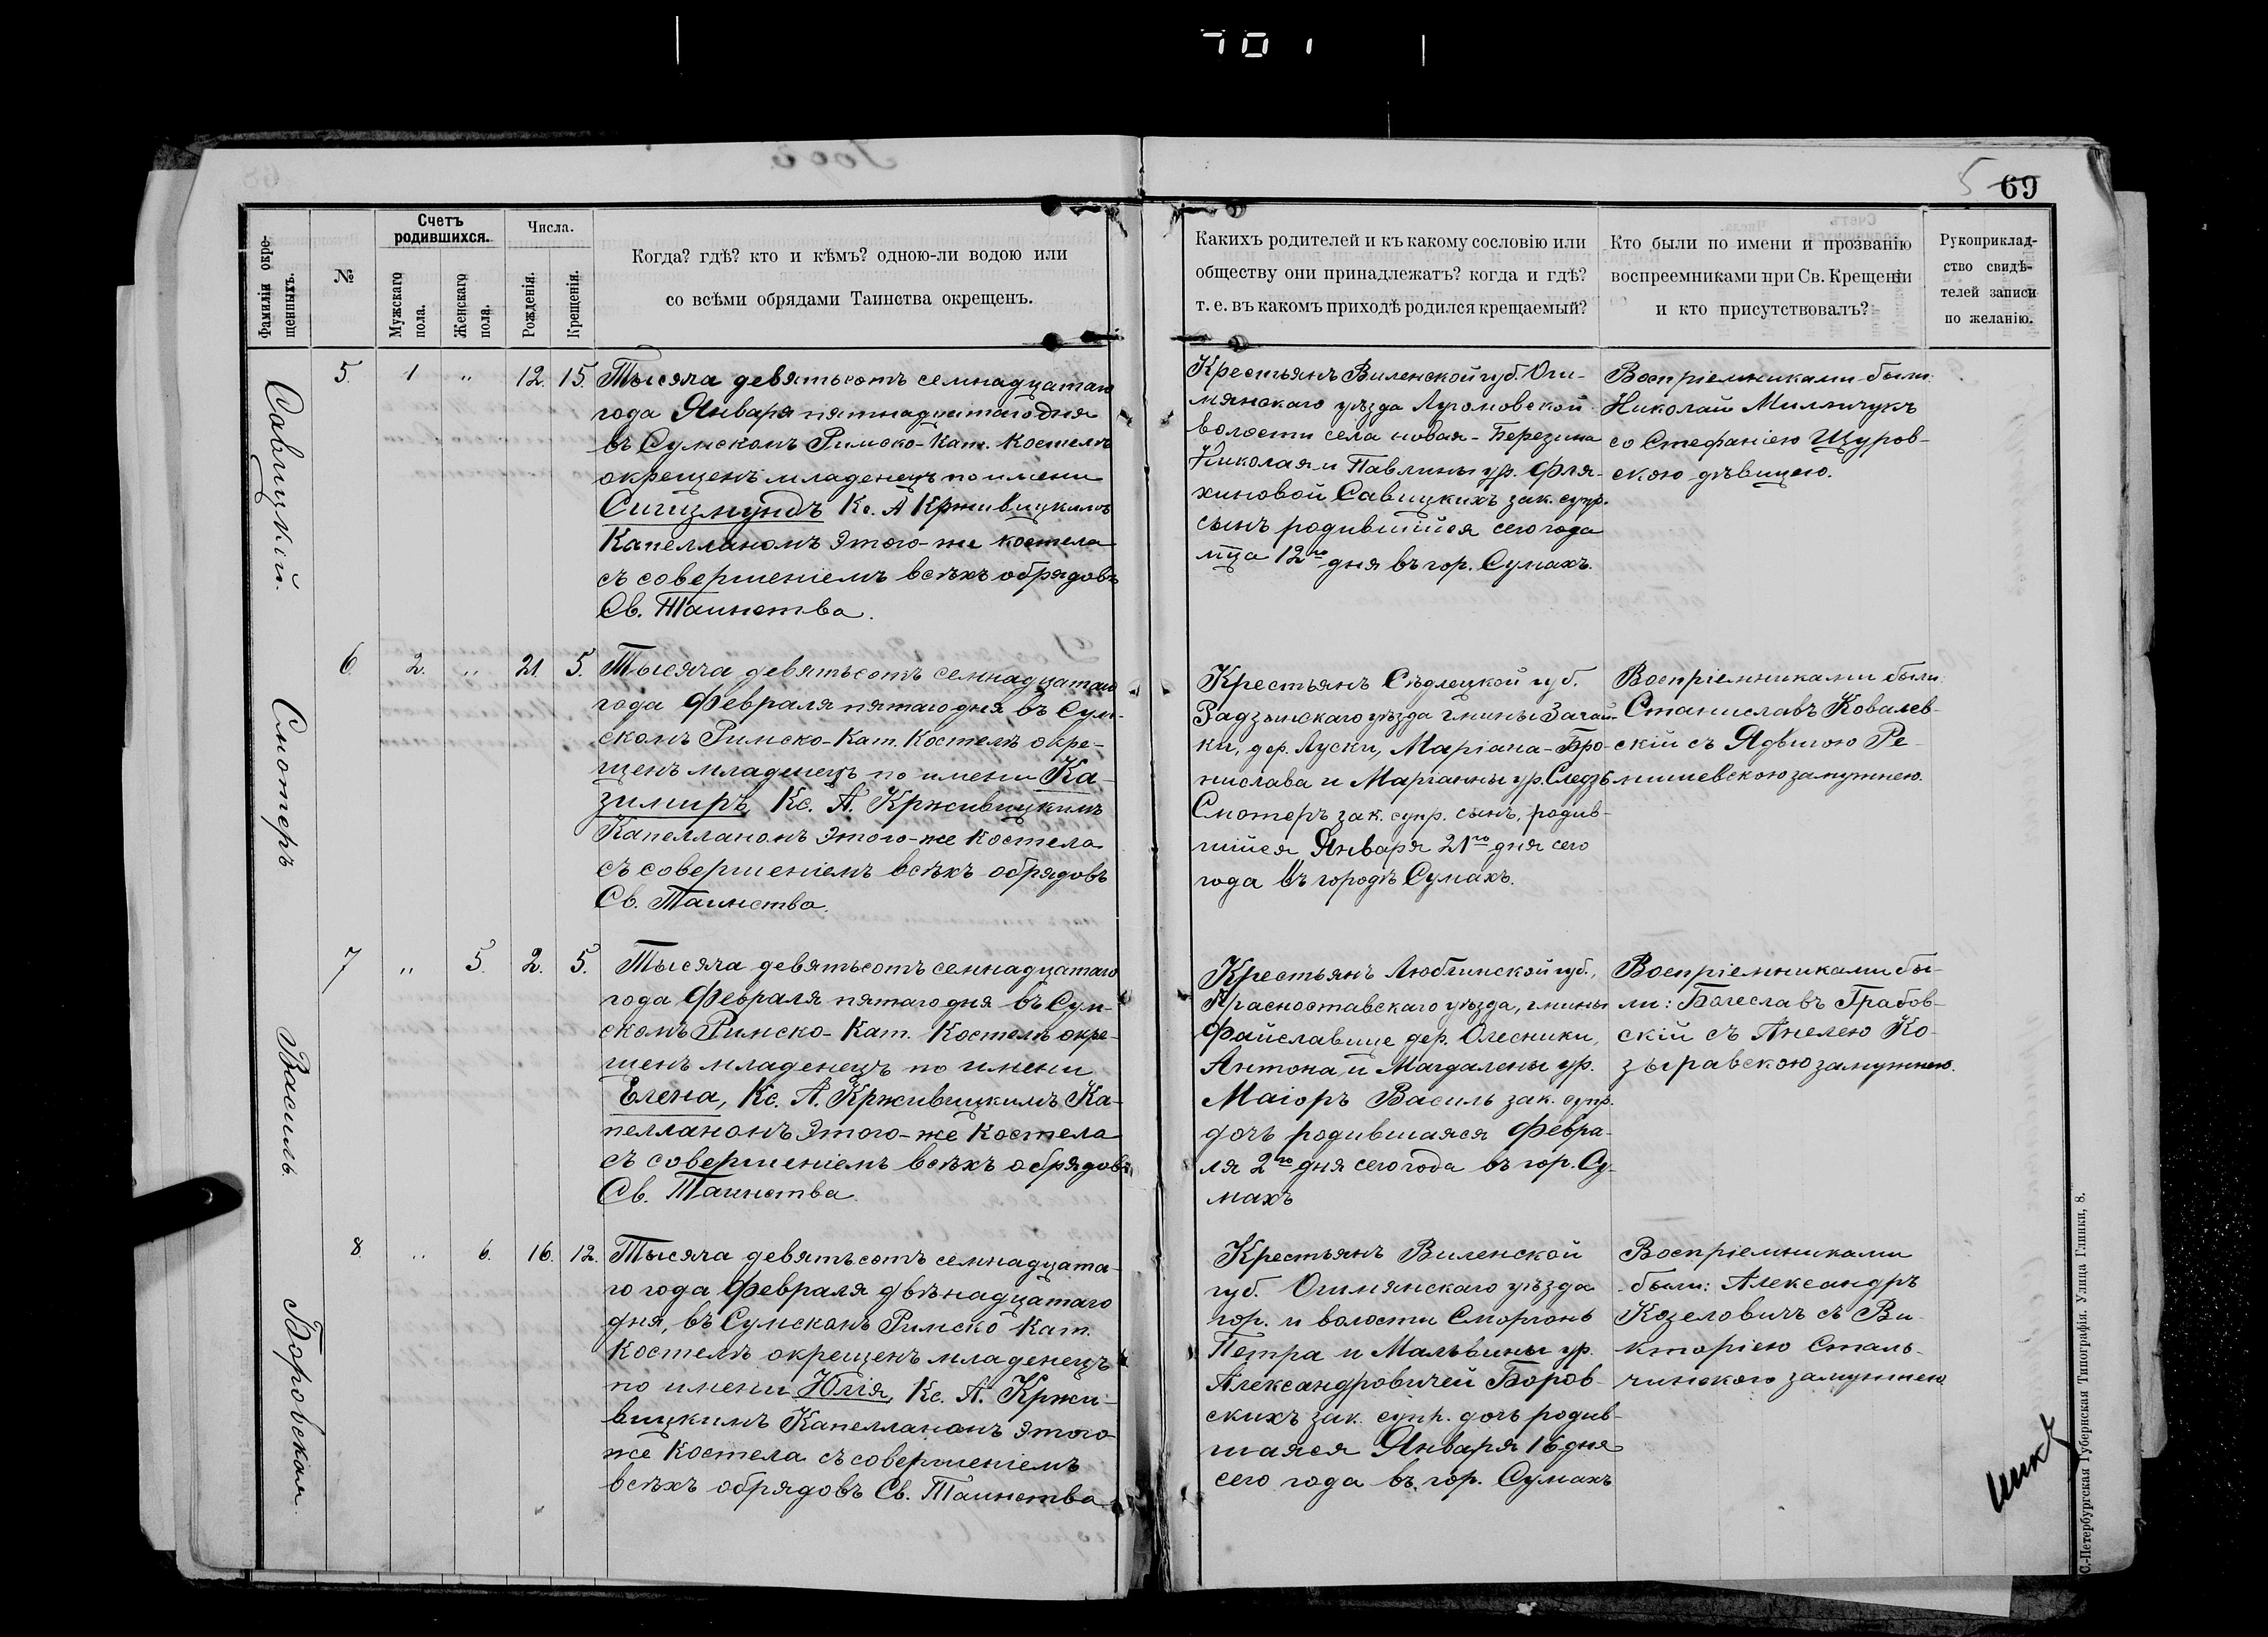 701
5 69
Фамиліи окре-
щенныхъ.
№
Счетъ
родившихся.
Мужскаго
пола.
Женскаго
пола.
Числа.
Рожденія.
Крещенія.
Когда? гдѣ? кто и кѣмъ? одною-ли водою или
со всѣми обрядами Таинства окрещенъ.
Какихъ родителей и къ какому сословію или
обществу они принадлежатъ? когда и гдѣ?
т. е. въ какомъ приходѣ родился крещаемый?
Кто были по имени и прозванію
воспреемниками при Св. Крещеніи
и кто присутствовалъ?
Рукоприклад-
ство свидѣ-
телей записи
по желанію.
Савицкій.
5. 1 „ 12. 15.
Тысяча девятьсотъ семнадцатаго
года Января пятнадцатаго дня
въ Сумскомъ Римско-Кат. Костелѣ
окрещенъ младенецъ по имени
Сигизмундъ Кс. А Крживицкимъ
Капелланомъ этого-же костела
съ совершеніемъ всѣхъ обрядовъ
Св. Таинства.
Крестьянъ Виленской губ. Ош-
мянскаго уѣзда
волости села новая-Березина
Николая и Павлины ур. Фля-
хиновой Савицкихъ зак. супр.
сынъ родившійся сего года
мца 12го дня въ гор. Сумахъ.
Воспріемниками были
Николай Милянчукъ
со Стефаніею Щуров-
скою дѣвицею.
Смотеръ
6. 2. „ 21. 5.
Тысяча девятьсотъ семнадцатаго
года Февраля пятаго дня въ Сум-
скомъ Римско-Кат. Костелѣ окре-
щенъ младенецъ по имени Ка-
зимиръ, Кс. А. Крживицкимъ
Капелланомъ этого-же Костела
съ совершеніемъ всѣхъ обрядовъ
Св. Таинства.
Крестьянъ Сѣдлецкой губ.
Радзынскаго уѣзда гмины Загай-
ки, дер. Луски, Маріана-Бро-
нислава и Маріанны ур. Следзь
Смотеръ зак. супр. сынъ, родив-
шійся Января 21го дня сего
года въ городѣ Сумахъ.
Воспріемниками были
Станиславъ Ковалев-
скій съ Ядвигою Ре-
мишевскою замужнею.
Василь.
7 „ 5. 2. 5.
Тысяча девятьсотъ семнадцатаго
года Февраля пятаго дня въ Сум-
скомъ Римско-Кат. Костелѣ окре-
щенъ младенецъ по имени
Елена, Кс. А. Крживицкимъ Ка-
пелланомъ этого-же Костела
съ совершеніемъ всѣхъ обрядовъ
Св. Таинства.
Крестьянъ Люблинской губ.,
Красноставскаго уѣзда, гмины
Файславице дер. Олесники,
Антона и Магдалены ур.
Маіоръ Василь зак. супр.
дочь родившаяся Февра-
ля 2го дня сего года въ гор. Су-
махъ
Воспріемниками бы-
ли: Болеславъ Грабов-
скій съ Анелею Ко-
зыравскою замужнею.
Боровская.
8. „ 6. 16. 12.
Тысяча девятьсотъ семнадцата-
го года Февраля двѣнадцатаго
дня, въ Сумскомъ Римско Кат.
Костелѣ окрещенъ младенецъ
по имени Юлія, Кс. А. Кржи-
вицкимъ Капелланомъ этого
же Костела съ совершеніемъ
всѣхъ обрядовъ Св. Таинства.
Крестьянъ Виленской
губ. Ошмянскаго уѣзда
гор. и волости Сморгонь
Петра и Мальвины ур.
Александровичей Боров-
скихъ зак. супр. дочь родив-
шаяся Января 16 дня
сего года въ гор. Сумахъ
Воспріемниками
были: Александръ
Козеловичъ съ Ви-
кторіею Сталь-
чинскою замужнею
С.-Петербургская Губернская Типографія. Улица Глинки, 8.